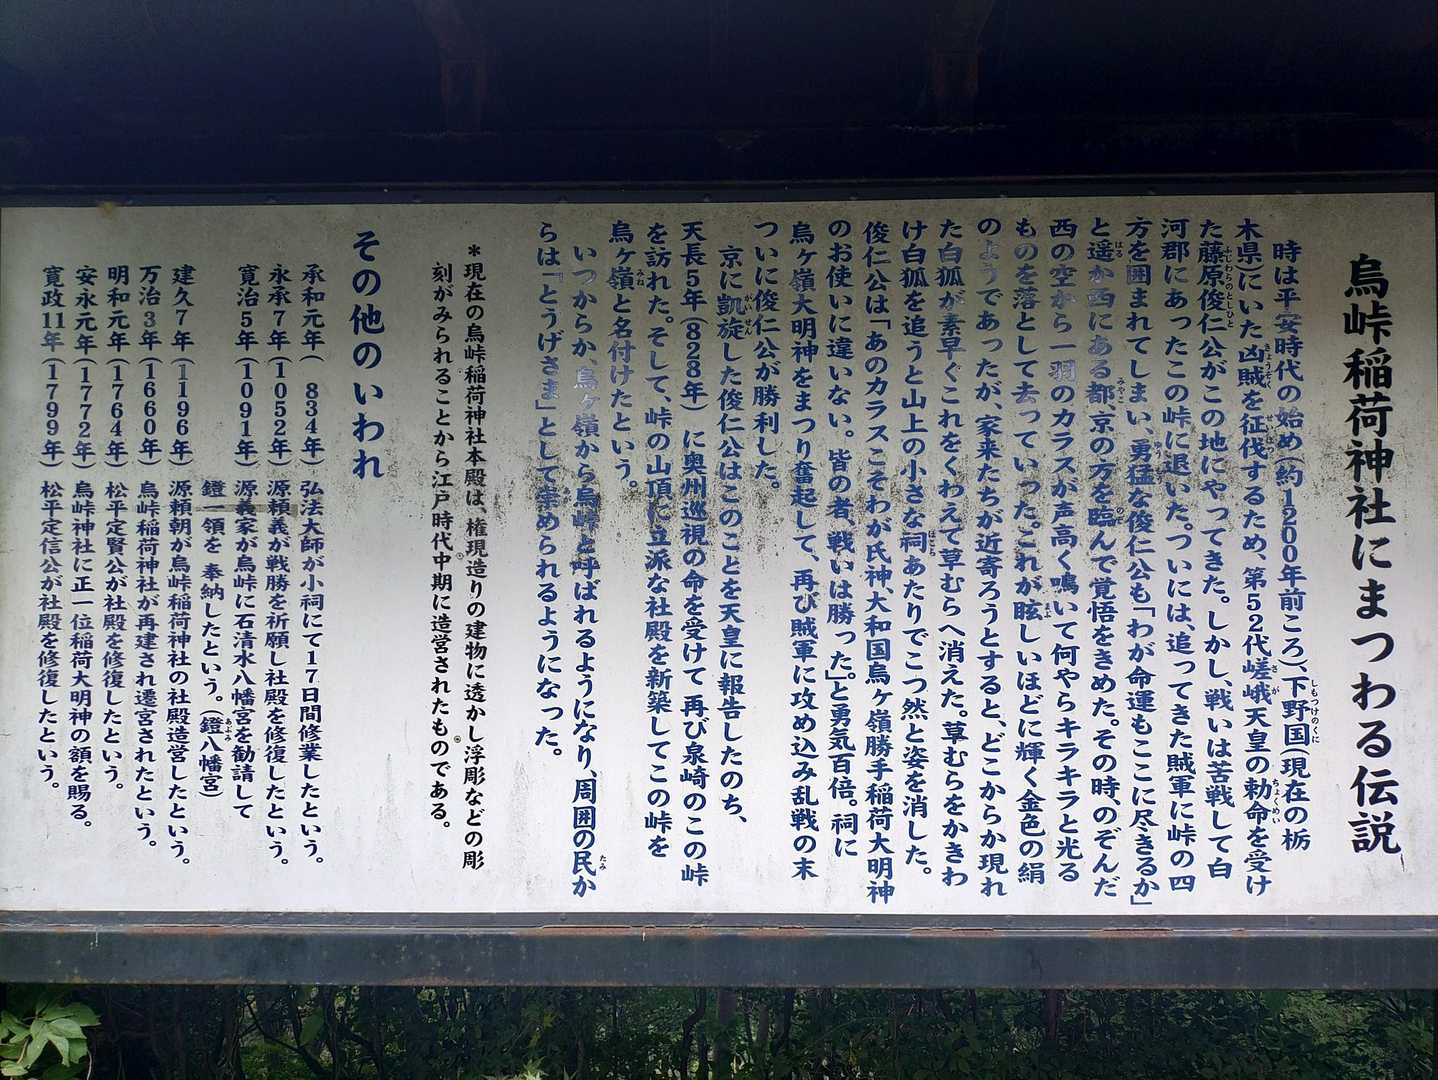 烏峠稲荷神社にまつわる伝説
時は平安時代の始め(約1200年前ころ)、下野国(現在の栃
木県)にいた凶賊を征伐するため、第52代嵯峨天皇の勅命を受け
た藤原俊仁公がこの地にやってきた。しかし、戦いは苦戦して白
河郡にあったこの峠に退いた。ついには、追ってきた賊軍に峠の四
方を囲まれてしまい、勇猛な俊仁公も「わが命運もここに尽きるか」
と遥か西にある都、京の方を臨んで覚悟をきめた。その時、のぞんだ
西の空から一羽のカラスが声高く鳴いて何やらキラキラと光る
ものを落として去っていった。これが眩しいほどに輝く金色の絹
のようであったが、家来たちが近寄ろうとすると、どこからか現れ
た白狐が素早くこれをくわえて草むらへ消えた。草むらをかきわ
け白狐を追うと山上の小さな祠あたりでこつ然と姿を消した。
俊仁公は「あのカラスこそわが氏神、大和国烏ヶ嶺勝手稲荷大明神
のお使いに違いない。皆の者、戦いは勝った」と勇気百倍。祠に
烏ヶ嶺大明神をまつり奮起して、再び賊軍に攻め込み乱戦の末
ついに俊仁公が勝利した。
京に凱旋した俊仁公はこのことを天皇に報告したのち、
天長5年(828年)に奥州巡視の命を受けて再び泉崎のこの峠
を訪れた。そして、峠の山頂に立派な社殿を新築してこの峠を
烏ヶ嶺と名付けたという。
いつからか、烏ヶ嶺から烏峠と呼ばれるようになり、周囲の民か
らは「とうげさま」として崇められるようになった。
*現在の烏峠稲荷神社本殿は、権現造りの建物に透かし浮彫などの彫
刻がみられることから江戸時代中期に造営されたものである。
その他のいわれ
承和元年( 834年) 弘法大師が小祠にて17日間修業したという。
永承7年(1052年) 源頼義が戦勝を祈願し社殿を修復したという。
寛治5年(1091年) 源義家が烏峠に石清水八幡宮を勧請して
鐙一領を 奉納したという。(鐙八幡宮)
建久7年(1196年) 源頼朝が烏峠稲荷神社の社殿造営したという。
万治3年(1660年) 烏峠稲荷神社が再建され遷宮されたという。
明和元年(1764年) 松平定賢公が社殿を修復したという。
安永元年(1772年) 烏峠神社に正一位稲荷大明神の額を賜る。
寛政11年(1799年) 松平定信公が社殿を修復したという。